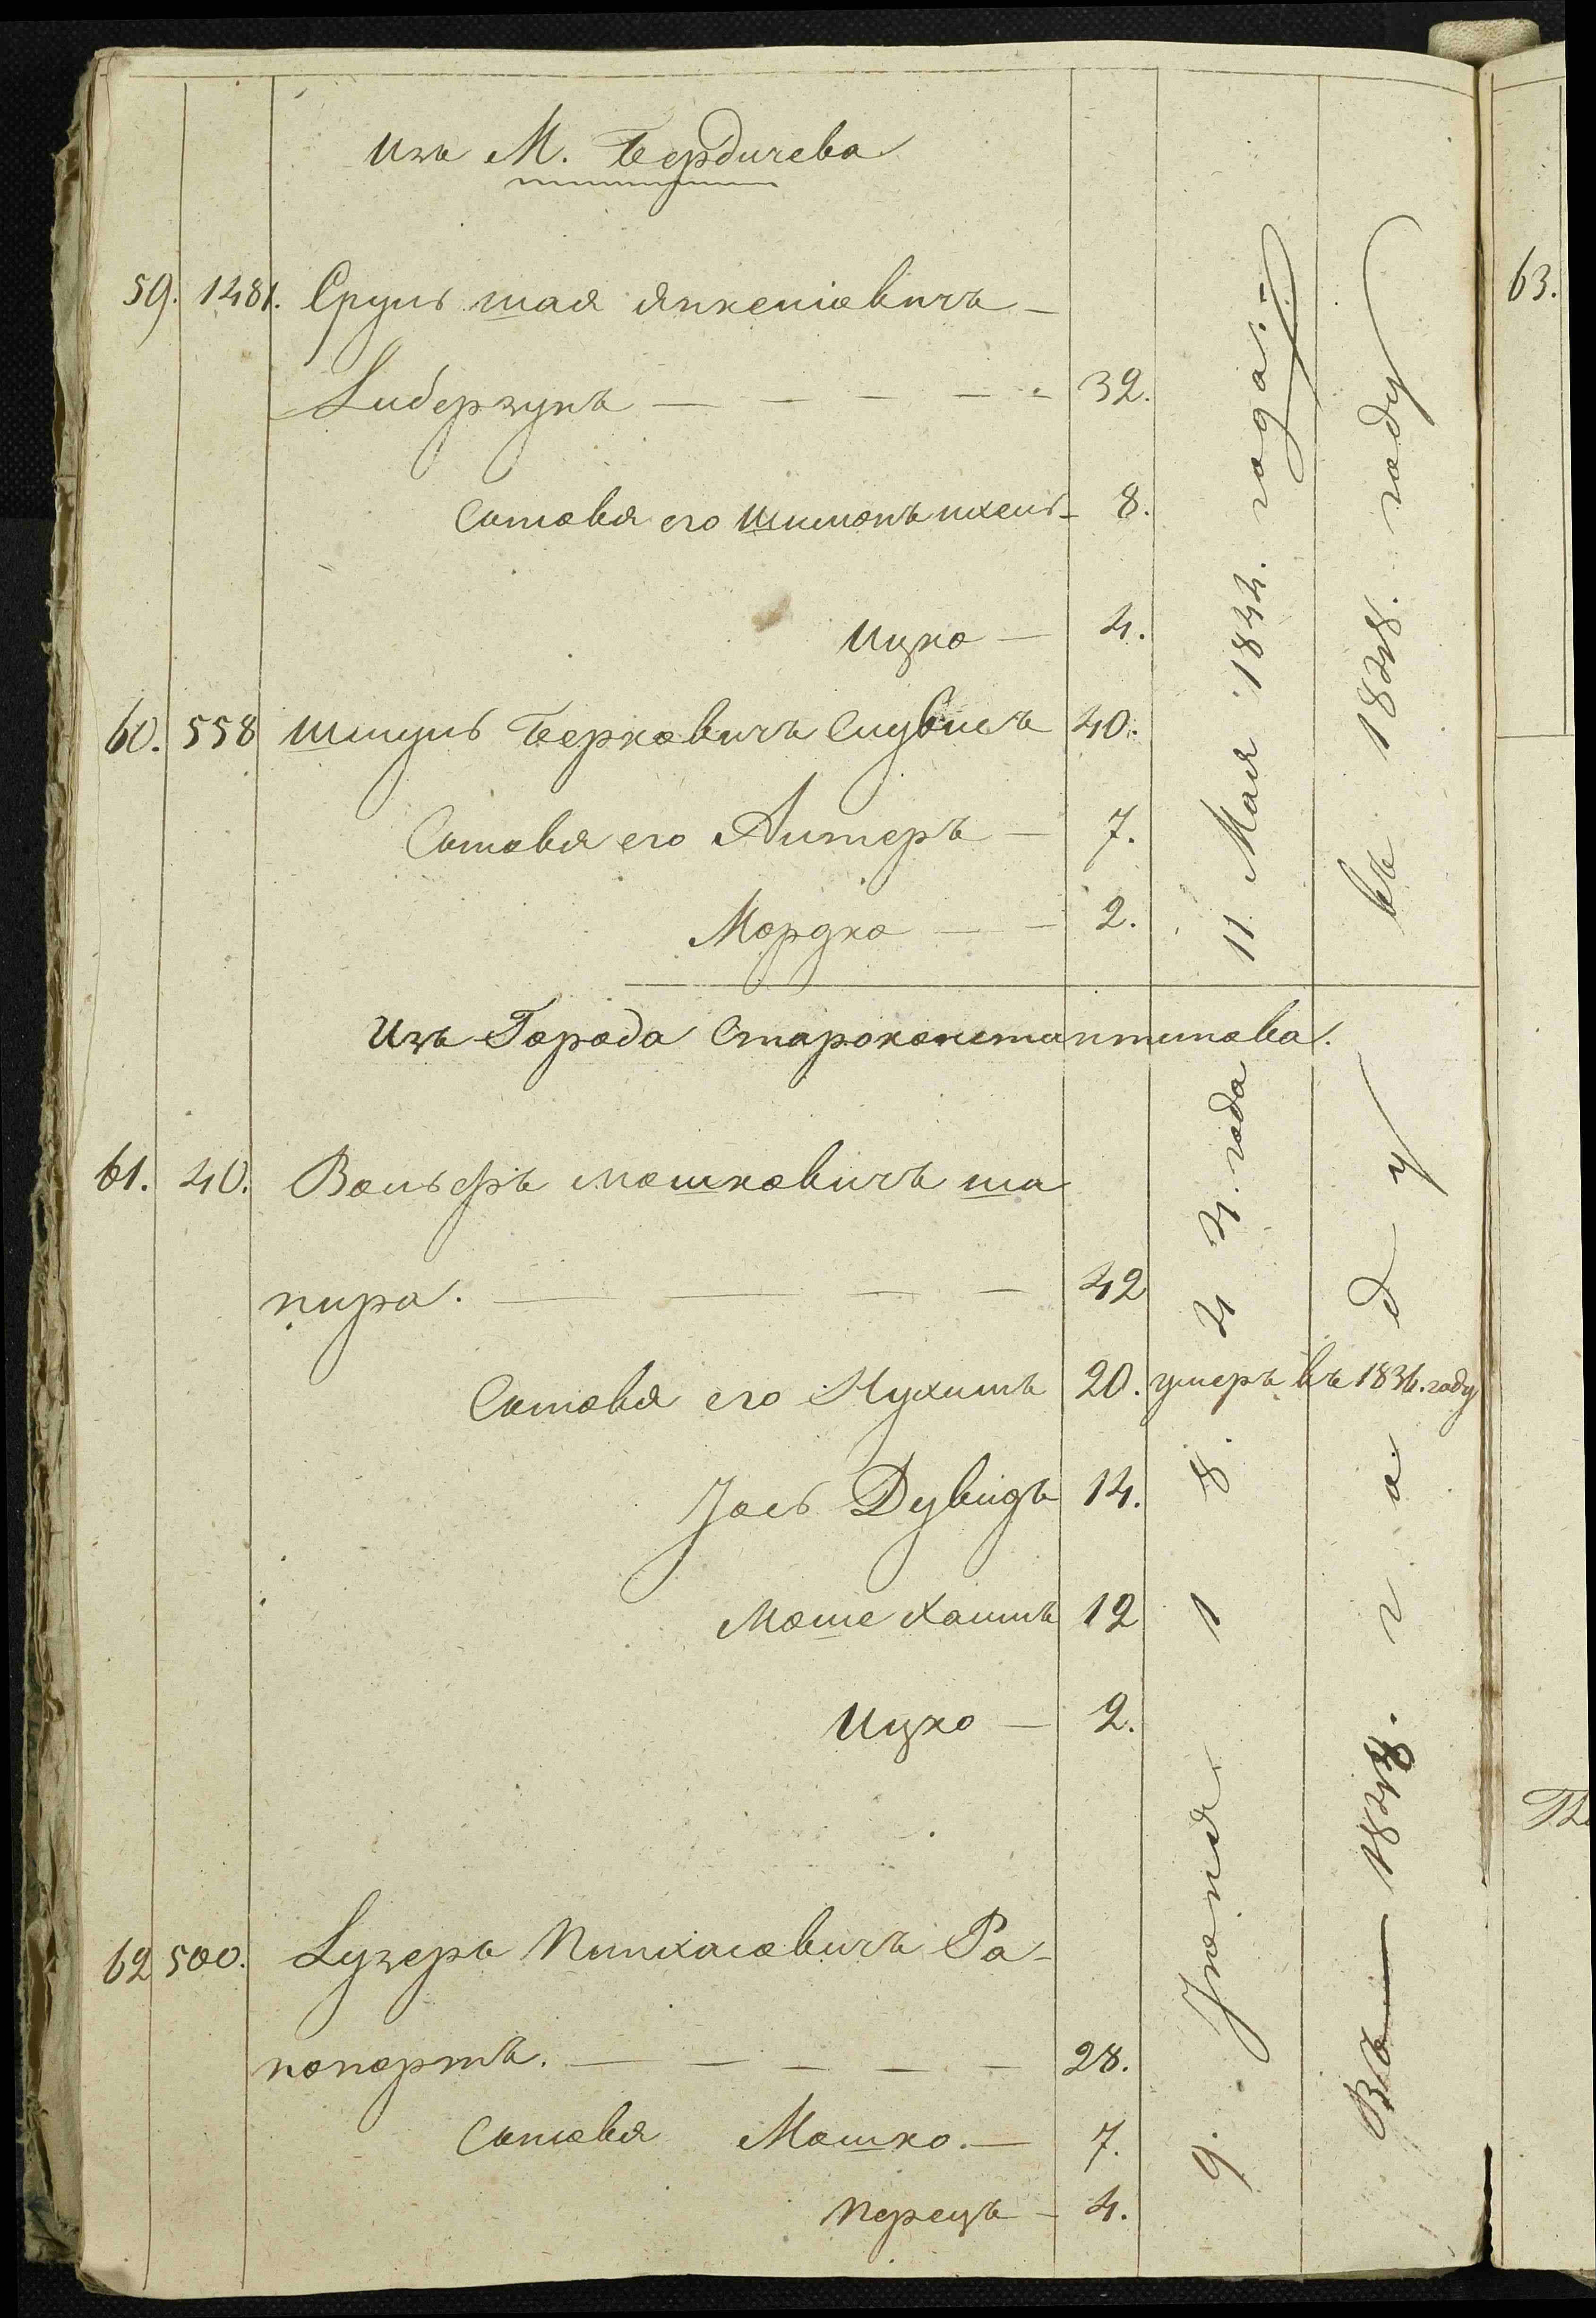 Изъ М. Бердичева
59. 1481. Сруль Шая Янкеліовичъ —
Либерзунъ — 32.
Сыновья его Шимонъ Ихель — 8.
Ицко — 4.
60. 558 Шмуль Берковичъ 40.
Сыновья его Алтеръ — 7.
Мордко — 2.
11 Мая 1844. года
въ 1828. году
Изъ Города Староконстантинова.
61. 40. Вольфъ Мошковичъ Ша
пира. — 42
Сыновья его Нухимъ 20. умеръ въ 1836. году
Іось Дувидъ 14.
Моше Хаимъ 12
Ицко — 2.
62 500. Лузеръ Пинхасовичъ Ра-
попортъ. — 28.
Сыновья Мошко. — 7.
Перецъ — 4.
9. Іюня 1844. года
Въ 1828. году
63.